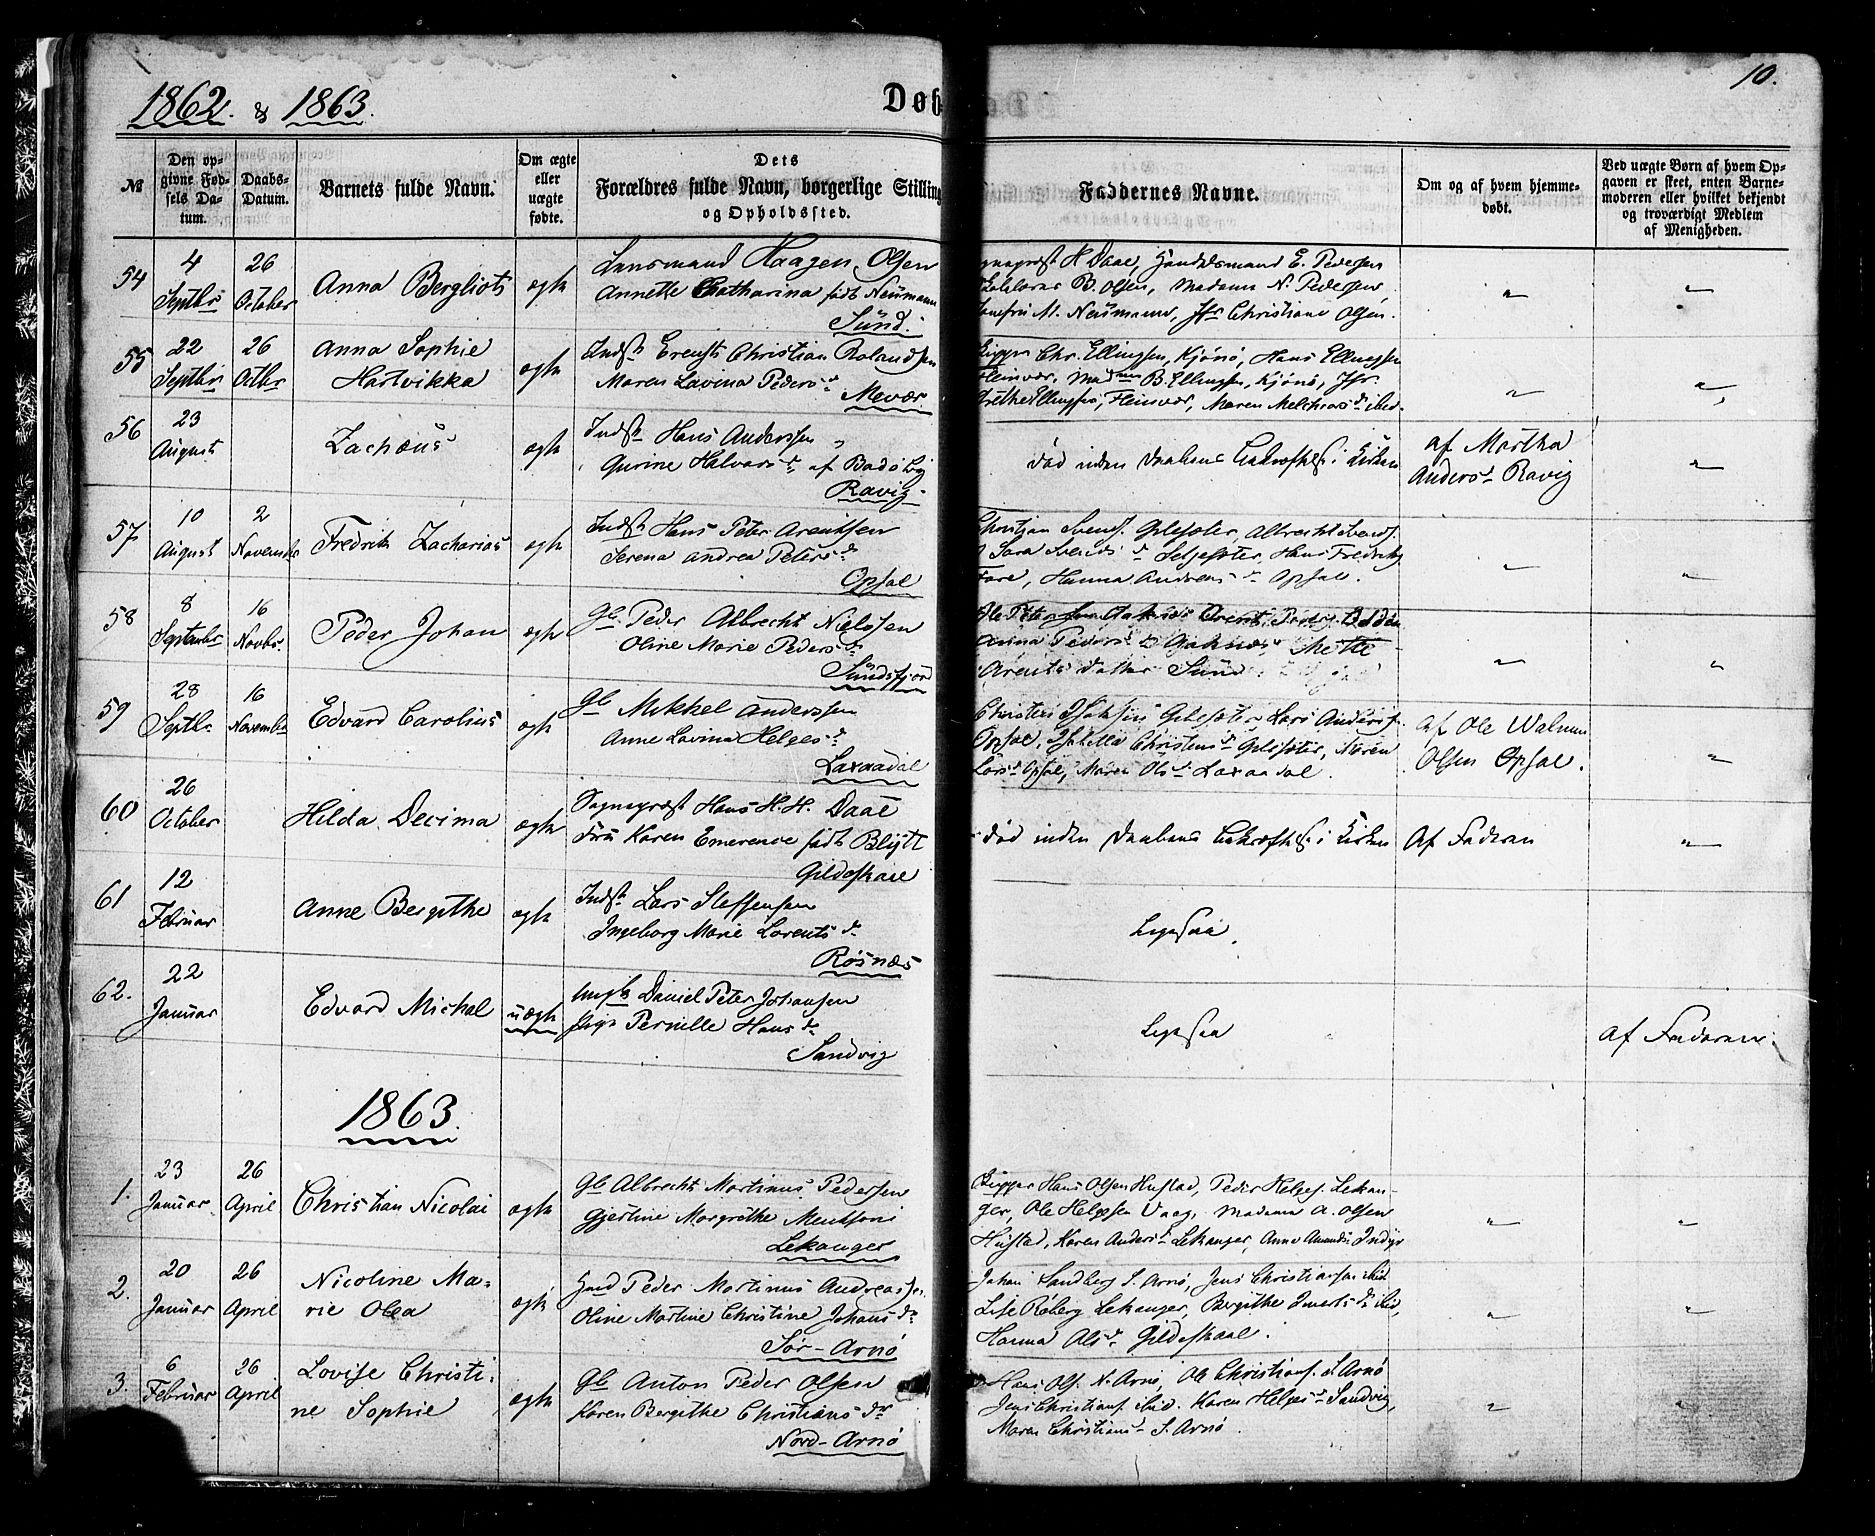 1862. & 1863.
Døb
10.
№
Den opgivne Fødsels Datum.
Daabs-Datum.
Barnets fulde Navn.
Om ægte eller uægte fødte.
Dets Forældres fulde Navn, borgerlige Stilling og Opholdssted.
Faddernes Navne.
Om og af hvem hjemmedøbt.
Ved uægte Børn af hvem Opgaven er skeet, enten Barnemoderen eller hvilket bekjendt og troværdigt Medlem af Menigheden.
54
4 Septbr
26 October
Anna Bergliot
ægte
Lensmand Haagen Olsen
Annette Catharina født Neumann
Sund.
H Daae, Handelsmand E. Pedersen
B. Olsen, Madame N. Pedersen,
M. Neumann, Jfr Christiane Olsen.
"
"
55
22 Septbr
26 Octbr
Anna Sophie
Hartvikka
ægte
Indst Ernst Christian Rolandsen
Maren Lavina Pedersd
Mevær.
Skipper Chr. Ellingsen, Kjønø, Hans Ellingsen
Fleinvær, Madme B. Ellingsen, Kjønø, Jfr.
Ellingsen, Fleinvær, Maren Melchiorsd ibid.
"
"
56
23 August
Zachæus
ægte
Indst Hans Anderssen
Gurine Halvorsd af Bodø By
Ravig
død inden Daabens Bekræftelse i Kirken
af Martha
Andersd Ravig
"
57
10 August
2 November
Fredrik Zacharias
ægte
Indst Hans Peter Arentsen
Serena Andrea Petersd
Opsal
Christian Svends. Gilesæter, Albrecht Svends.
Sara Svendsd Seljesæter, Hans Fredriks
Fore, Hanna Andreasd Opsal.
"
"
58
8 September
16 Novbr.
Peder Johan
ægte
Gb. Peder Albrecht Nielssen
Oline Marie Pedersd
Sundsfjord
Anna Pedersd Mette
Arents Datter Sund
"
"
59
28 Septbr
16 November
Edvard Carolius
ægte
Gb Mikkel Anderssen
Anne Lavina Helgesd
Laxaadal
Christen Isaksen Gilesæter, Lars Anders.
Opsal, Christensd Gilesæter, Karen
Larsd Opsal, Maren Olsd Laxaadal.
af Ole
Olsen Opsal.
"
60
26 October
Hilda Decima
ægte
Sognepræst Hans H. H. Daae
Fru Karen Emerence født Blytt
Gildeskaal
død inden Daabens Bekræftelse i Kirken
Af Faderen
"
61
12 Februar
Anne Bergithe
ægte
Indst Lars Steffensen
Ingeborg Marie Lorentsd
Røsnæs
Ligesaa
62.
22 Januar
Edvard Michal
uægte
Ungk Daniel Peter Johansen
Pige Pernille Hansd
Sandvig
Ligesaa
af Faderen.
1863.
1.
23 Januar
26 April
Christian Nicolai
ægte
Gb Albrecht Martinus Pedersen
Gjertine Margrethe Mentsoni
Lekanger
Skipper Hans Olsen Hustad, Peder Helges. Lekanger,
Ole Helgesen Vaag, Madame A. Olsen
Hustad, Karen Andersd Lekanger, Anne Amundsd Indyr
"
"
2.
20 Januar
26 April
Nicoline Marie
Olea
ægte
Hmd Peder Martinus Andreassen
Oline Martine Christine Johansd
Sør-Arnø
Johan Sandberg S. Arnø, Jens Christiansen ibid
Lise Røberg Lekanger, Bergithe Iversd ibid,
Hanna Olsd Gildeskaal.
"
"
3.
6 Februar
26 April
Lovise Christine
Sophie
ægte
Gb Anton Peder Olsen
Karen Bergithe Christiansdr
Nord-Arnø
Hans Ols. N. Arnø, Ole Christians. S. Arnø
Jens Christians. ibid. Karen Helgesd Sandvig,
Maren Christiansd S. Arnø.
"
"